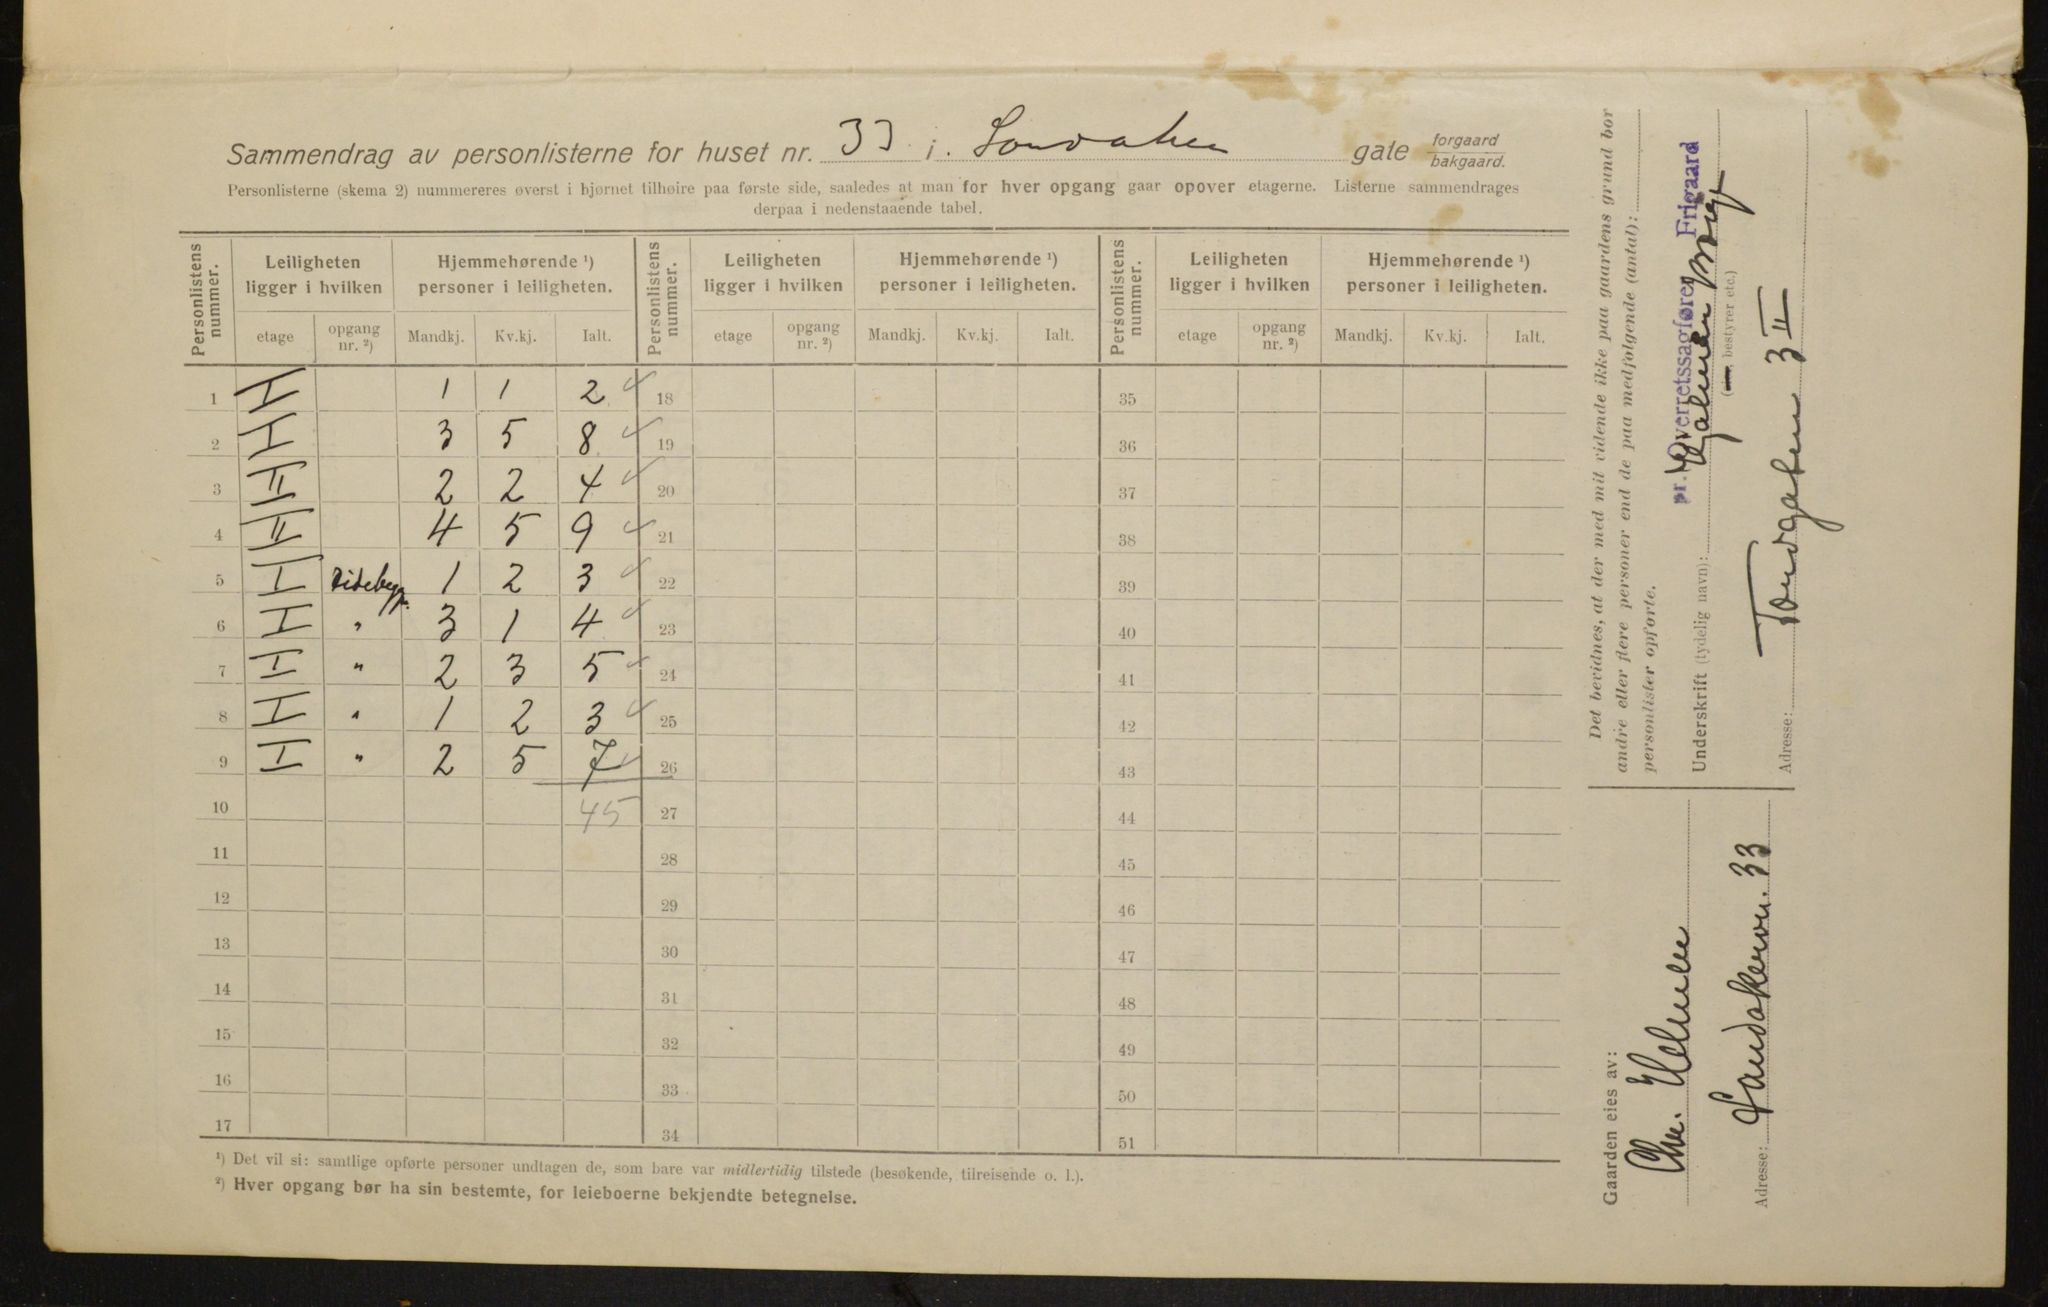 Sammendrag av personlisterne for huset nr. 33 i. Sandaker gate forgaard bakgaard.
Personlisterne (skema 2) nummereres øverst i hjørnet tilhøire paa første side, saaledes at man for hver opgang gaar opover etagerne. Listerne sammendrages
derpaa i nedenstaaende tabel.
Personlistens nummer. Leiligheten ligger i hvilken Hjemmehørende ¹) personer i leiligheten. Personlistens nummer. Leiligheten ligger i hvilken Hjemmehørende ¹) personer i leiligheten. Personlistens nummer. Leiligheten ligger i hvilken Hjemmehørende ¹) personer i leiligheten.
etage opgang nr. ²) Mandkj. Kv.kj. Ialt. etage opgang nr. ²) Mandkj. Kv.kj. Ialt. etage opgang nr. ²) Mandkj. Kv.kj. Ialt.
1 I 1 1 2 18 35
2 I 3 5 8 19 36
3 II 2 2 4 20 37
4 II 4 5 9 21 38
5 I Sidebygn. 1 2 3 22 39
6 I " 3 1 4 23 40
7 I " 2 3 5 24 41
8 I " 1 2 3 25 42
9 I " 2 5 7 26 43
10 45 27 44
11 28 45
12 29 46
13 30 47
14 31 48
15 32 49
16 33 50
17 34 51
¹) Det vil si: samtlige opførte personer undtagen de, som bare var midlertidig tilstede (besøkende, tilreisende o. l.).
²) Hver opgang bør ha sin bestemte, for leieboerne bekjendte betegnelse.
Det bevidnes, at der med mit vidende ikke paa gaardens grund bor
andre eller flere personer end de paa medfølgende (antal):
personlister opførte.
pr. Overretssagfører Frigaard
Underskrift (tydelig navn):
( bestyrer etc.)
Adresse: Torvgaten 3 II
Gaarden eies av:
Chr.
Adresse: Sandakervn. 33